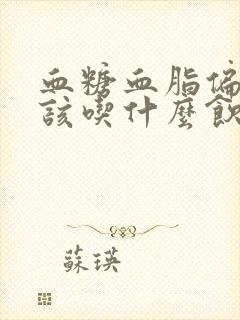 血糖血脂偏
該喫什麼飲
蘇瑛